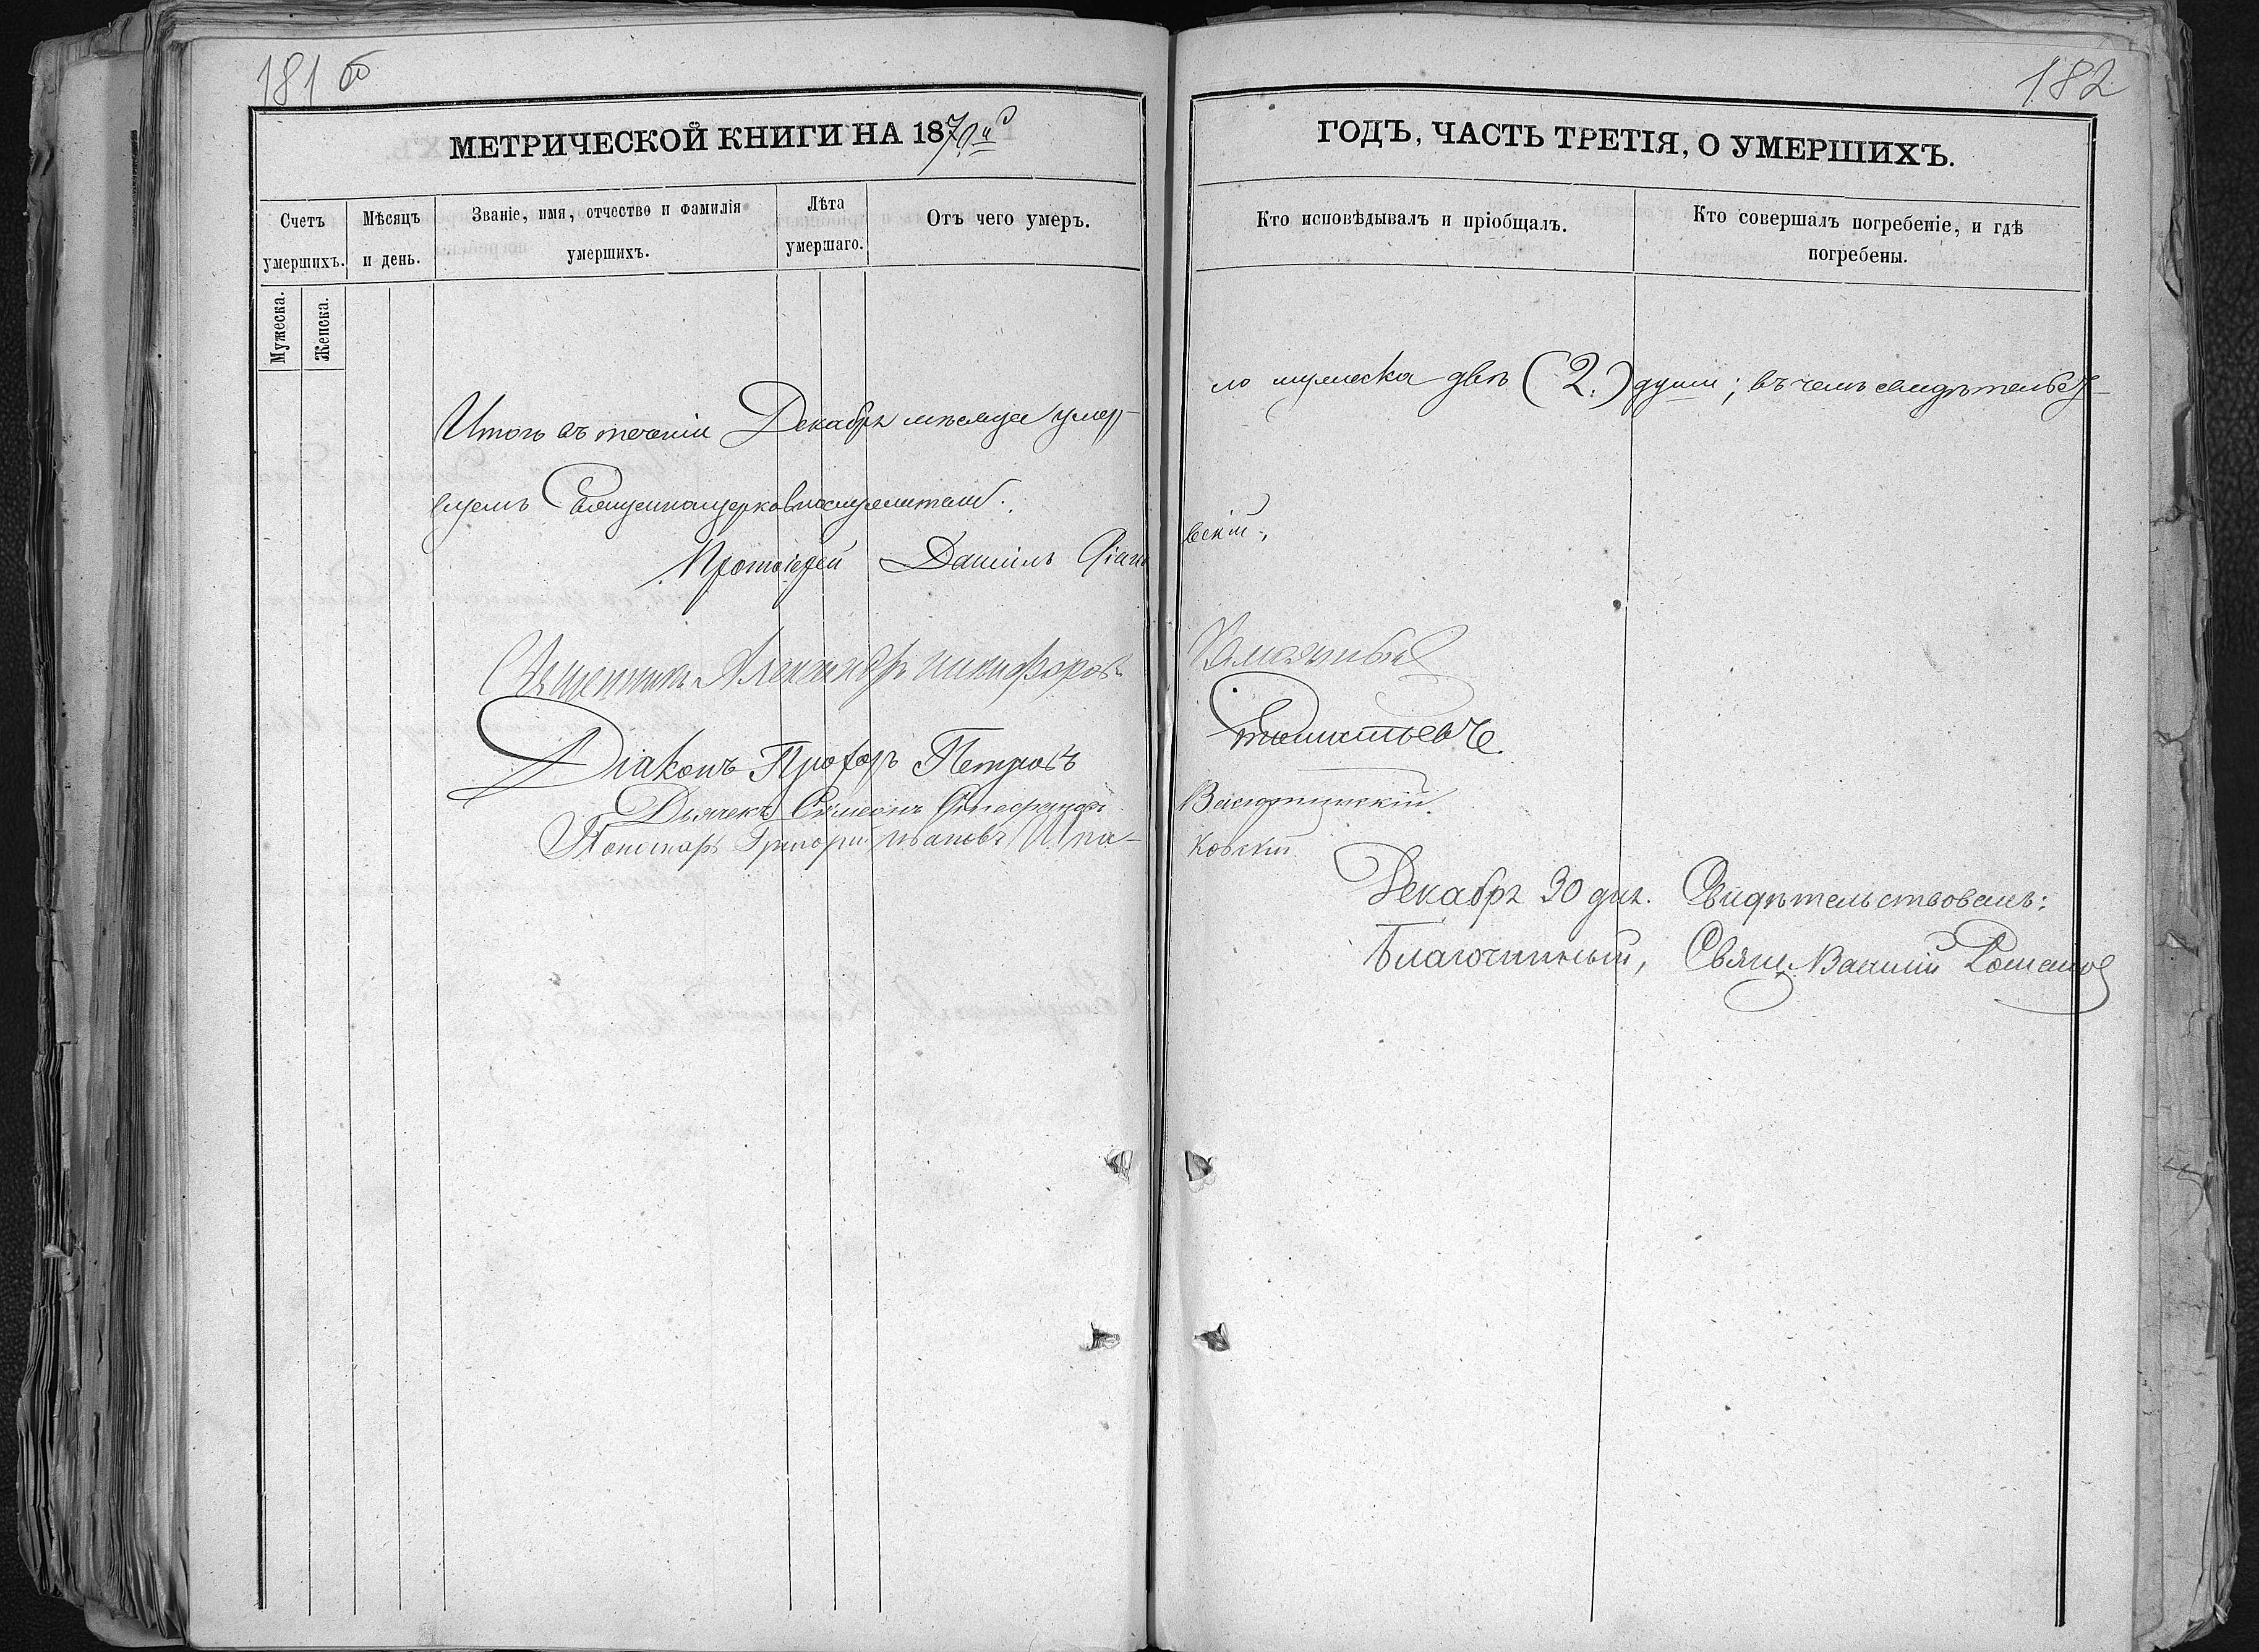 181 об
182
МЕТРИЧЕСКОЙ КНИГИ НА 1870й
ГОДЪ, ЧАСТЬ ТРЕТІЯ, О УМЕРШИХЪ.
Счетъ умершихъ.
Мужеска.
Женска.
Мѣсяцъ и день.
Званіе, имя, отчество и фамилія умершихъ.
Лѣта умершаго.
Отъ чего умеръ.
Кто исповѣдывалъ и пріобщалъ.
Кто совершалъ погребеніе, и гдѣ погребены.
Итого въ теченіи Декабря мѣсяца умер-
ло мужеска двѣ (2.) души; въ чемъ свидѣтельст-
вуемъ Священноцерковнослужители:
Протоіерей Даніилъ
вскій.,
Священникъ Александръ Никифоровъ
Діаконъ Прохоръ Петровъ
Дьячекъ Симеонъ
Пономарь Григорій Ивановъ
ковскій
Декабря 30 дня. Свидѣтельствовалъ:
Благочинный, Свящ. Василій Романов